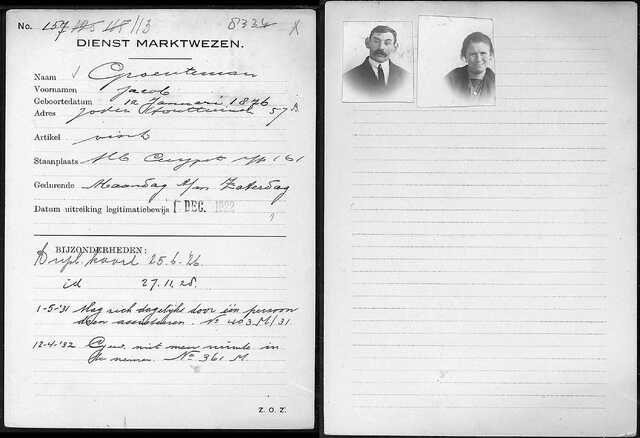 No. 157 125 118/113 8334 X
DIENST MARKTWEZEN.
Naam Groenteman
Voornamen Jacob
Geboortedatum 12 Januari 1876
Adres Joden Houttuinen 57 B.
Artikel visch
Staanplaats Alb Cuypst 161
Gedurende Maandag t/m Zaterdag
Datum uitreiking legitimatiebewijs 1 DEC. 1922
BIJZONDERHEDEN:
Dupl. kaart 25.6.'26
id 27.11.28.
1-5-'31 Mag zich dagelijks door één persoon
doen assisteeren. No 403 M/31.
12-4-'32 Gew. niet meer ruimte in
te nemen. No 361 M.
Z. O. Z.